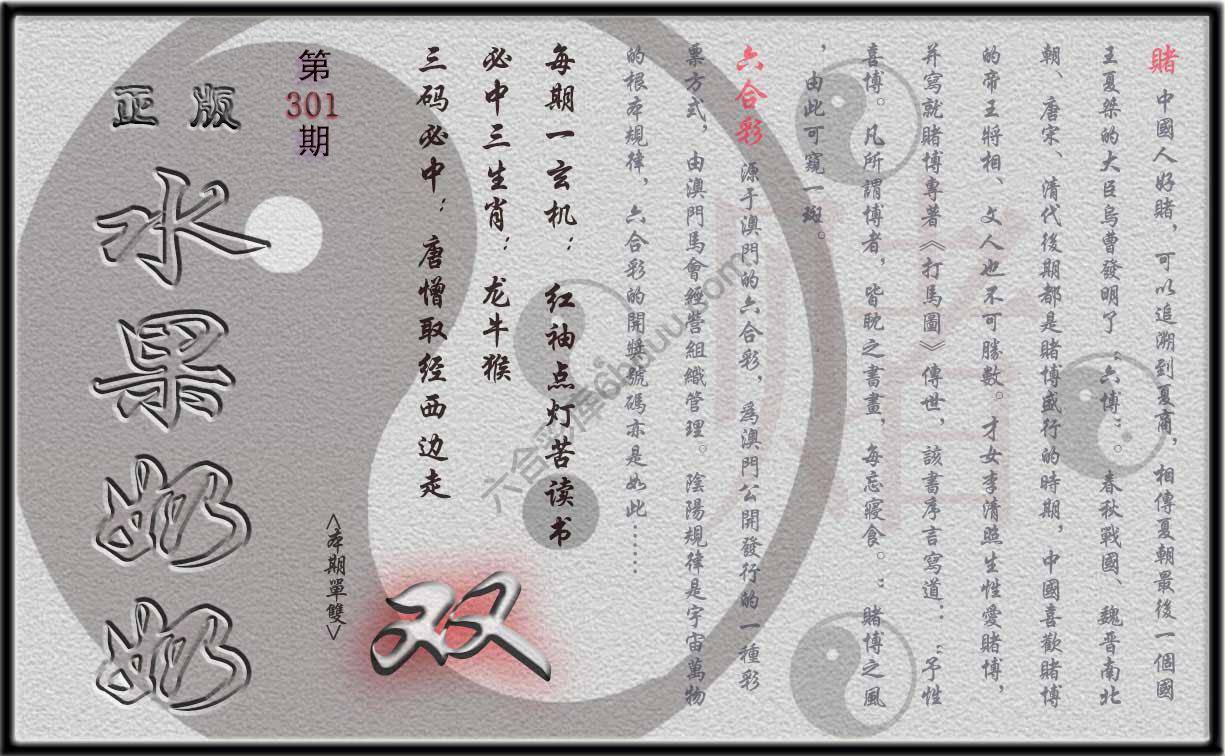 賭 中國人好賭，可以追溯到夏商，相傳夏朝最後一個國
王夏桀的大臣烏曹發明了“六博”。春秋戰國、魏晋南北
朝、唐宋、清代後期都是賭博盛行的時期，中國喜歡賭博
的帝王將相、文人也不可勝數。才女李清照生性愛賭博，
并寫就賭博專著《打馬圖》傳世，該書序言寫道：“予性
喜博。凡所謂博者，皆眈之書畫，每忘寢食。”賭博之風
，由此可窺一斑。
六合彩 源于澳門的六合彩，為澳門公開發行的一種彩
票方式，由澳門馬會經營組織管理。陰陽規律是宇宙萬物
的根本規律，六合彩的開獎號碼亦是如此……
每期一玄机：红袖点灯苦读书
必中三生肖：龙牛猴
三码必中：唐憎取经西边走
<本期單雙>
双
第301期
正版
水果奶奶
賭
六合彩库6hduu.com